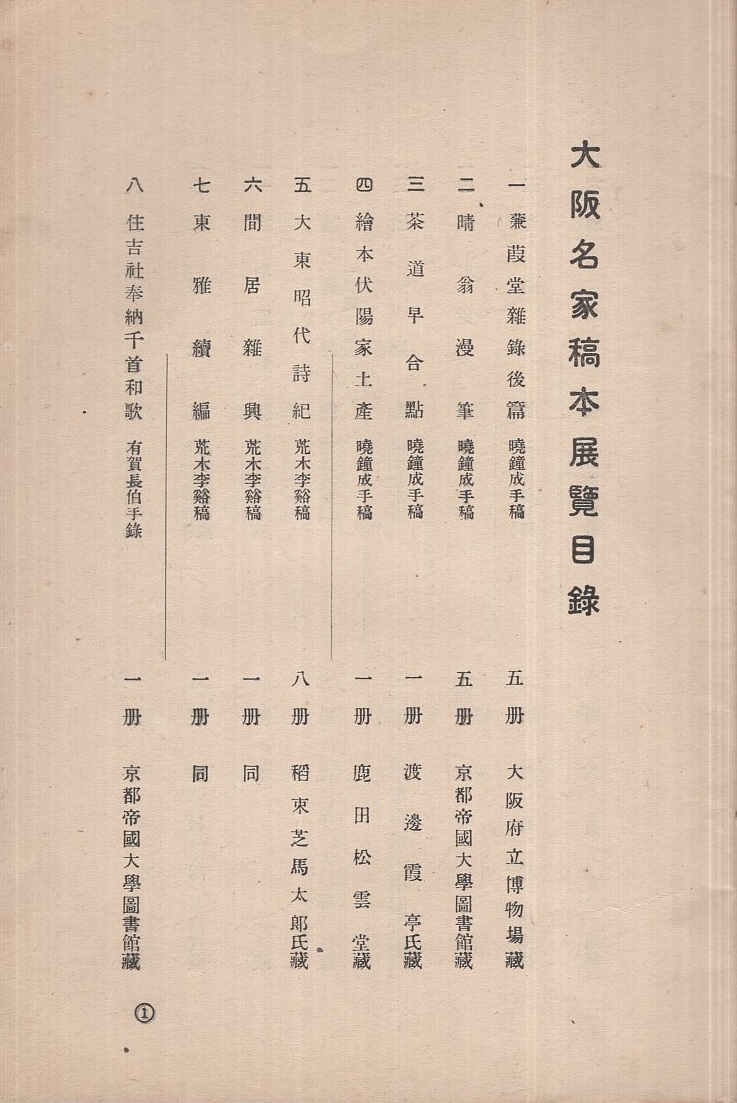 大阪名家稿本展覽目錄
一 蒹葭堂雜錄後篇 曉鐘成手稿 五册 大阪府立博物場藏
二 晴翁漫筆 曉鐘成手稿 五册 京都帝國大學圖書館藏
三 茶道早合點 曉鐘成手稿 一册 渡邊霞亭氏藏
四 繪本伏陽家土產 曉鐘成手稿 一册 鹿田松雲堂藏
五 大東昭代詩紀 荒木李谿稿 八册 稻束芝馬太郞氏藏
六 間居雜興 荒木李谿稿 一册 同
七 東雅續編 荒木李谿稿 一册 同
八 住吉社奉納千首和歌 有賀長伯手錄 一册 京都帝國大學圖書館藏
①